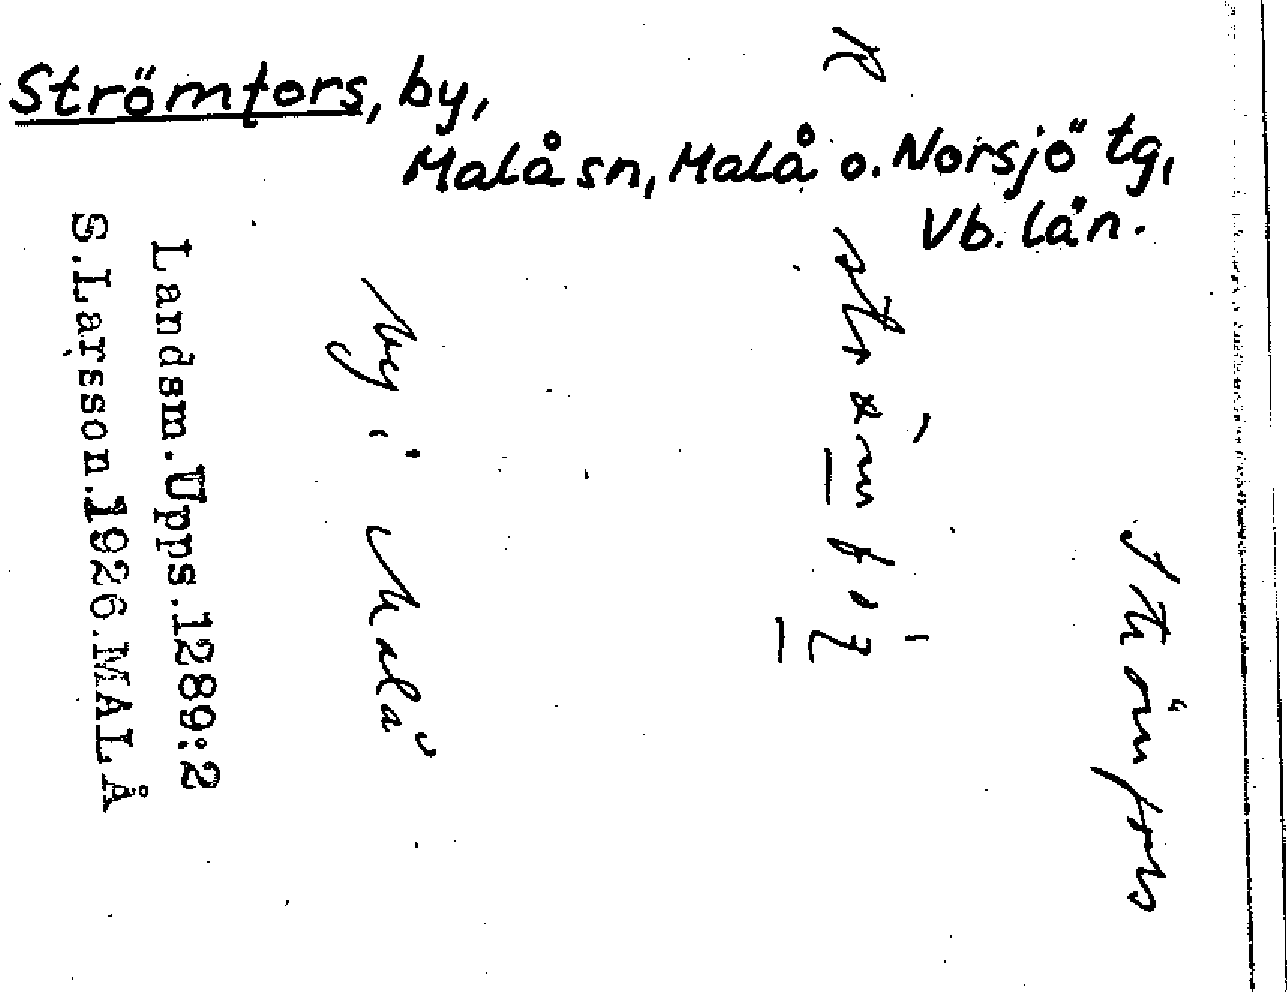 Strömfors, by,
Malå sn, Malå o. Norsjö tg,
Vb. län.
Strömfors
R
by i Malå
Landsm. Upps. 1289:2
S. Larsson. 1926. MALÅ